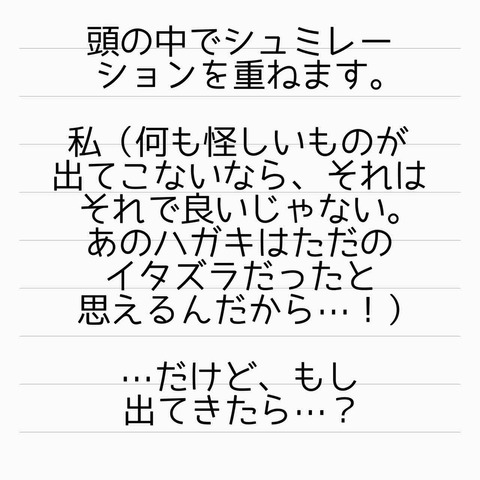 頭の中でシュミレー
ションを重ねます。
私（何も怪しいものが
出てこないなら、それは
それで良いじゃない。
あのハガキはただの
イタズラだったと
思えるんだから…！）
…だけど、もし
出てきたら…？